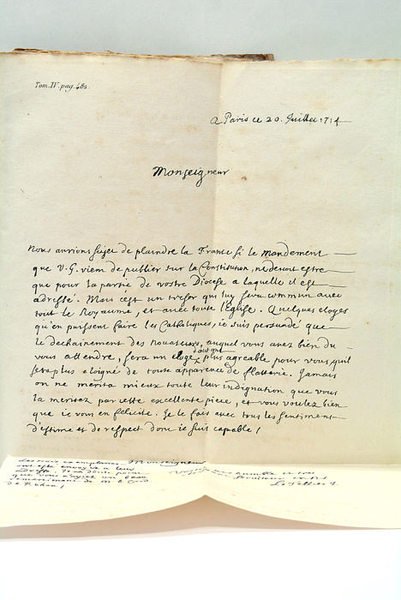 Tom. IV. pag. 480.
a Paris ce 20. Juillet 1714
Monseigneur
Nous aurions sujet de plaindre la France si le mandement
que V. G. vient de publier sur la Constitution, ne devoit estre
que pour la partie de vostre Diocese a laquelle il est
adressé. Mais c'est un tresor qui luy sera commun avec
tout le Royaume, et avec toute l'Eglise. Quelques eloges
qu'en puissent faire les Catholiques, ie suis persuadé que
le dechainement des Novateurs, auquel vous avez bien du
vous attendre, sera un eloge d'autant plus agreable pour vous, qu'il
sera plus eloigné de toute apparence de flatterie. Jamais
on ne merita mieux toute leur indignation que vous
la meritez par cette excellente piece, et vous voulez bien
que ie vous en felicite. Je le fais avec tous les sentimens
d'estime et de respect dont ie suis capable !
Monseigneur
ont esté envoyez a leur
humble et tres
Le Tellier J.